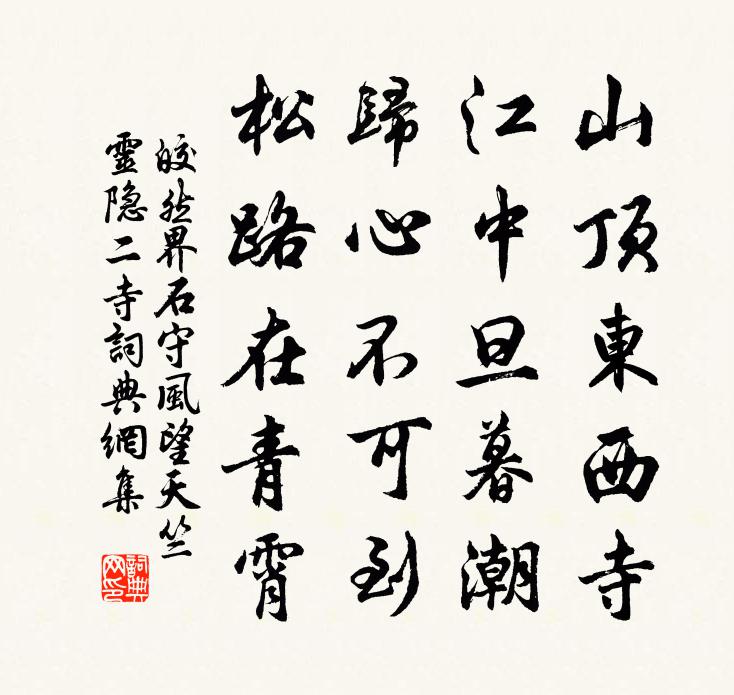 山顶東西寺
江中旦暮潮
歸心不可到
松路在青霄
皎然界石守風望天竺
靈隐二寺詞典網集
詞典网印